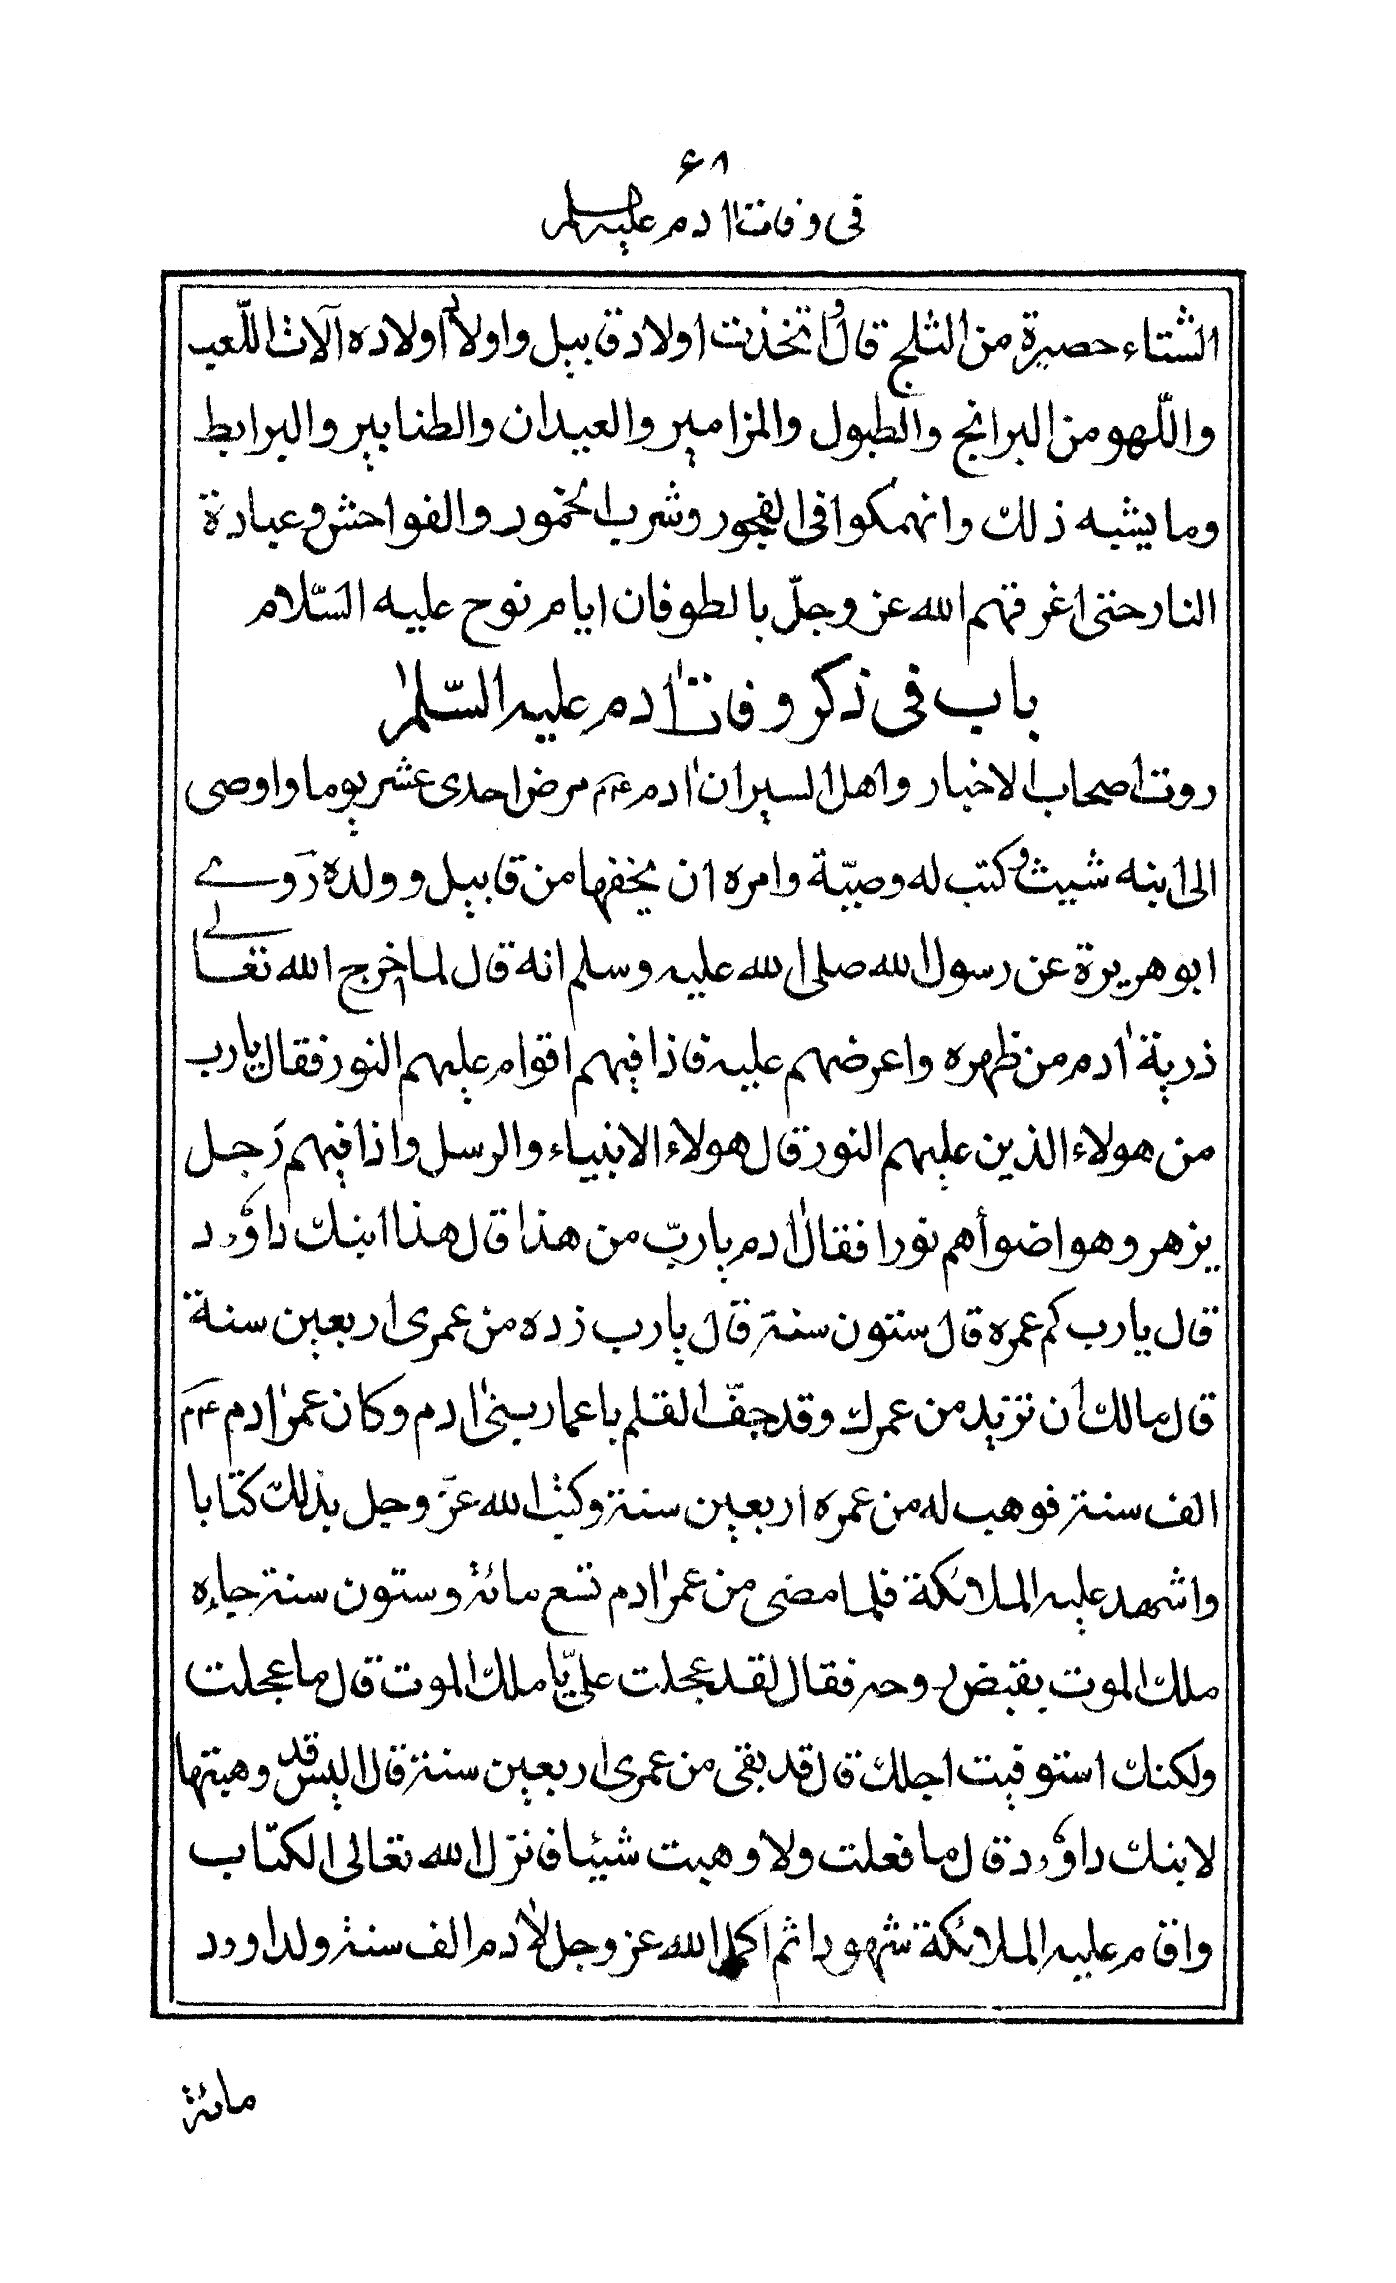 ۶۸
فی وفات اٰدم علیه السلم
الشتاء حصیرة من الثلج قال واتخذت اولاد قابیل واولاد اولاده آلات اللّعب
واللّهو من البرانج والطبول والمزامیر والعیدان والطنابیر والبرابط
وما یشبه ذلك وانهمكوا فی الفجور وشرب الخمور والفواحش وعبادة
النار حتی اغرقهم الله عز وجلّ بالطوفان ایام نوح علیه السّلام
باب فی ذكر وفات اٰدم علیه السّلم
روت اصحاب الاخبار واهل السیر ان اٰدم عم مرض احدی عشر یوما واوصی
الی ابنه شیث وكتب له وصیّة وامره ان یخفها من قابیل وولده روے
ابو هریرة عن رسول الله صلی الله علیه وسلم انه قال لما اخرج الله تعالے
ذریة اٰدم من ظهره واعرضهم علیه فاذا فیهم اقوام علیهم النور فقال یارب
من هولاء الذین علیهم النور قال هولاء الانبیاء والرسل واذا فیهم رجل
یزهر وهو اضوأهم نورا فقال اٰدم یاربّ من هذا قال هذا ابنك داوٗد
قال یارب كم عمره قال ستون سنة قال یارب زده من عمری اربعین سنة
قال مالك ان تزید من عمرك وقد جفّ القلم باعمار بنی اٰدم وكان عمر اٰدم عم
الف سنة فوهب له من عمره اربعین سنة وكتب الله عزّ وجل بذلك كتابا
واشهد علیه الملائكة فلما مضی من عمر اٰدم تسع مائة وستون سنة جاءه
ملك الموت یقبض روحه فقال لقد عجلت علیّ یا ملك الموت قال ما عجلت
ولكنك استوفیت اجلك قال قد بقی من عمری اربعین سنة قال الیس قد وهبتها
لابنك داوٗد قال ما فعلت ولا وهبت شیئا فنزل الله تعالی الكتاب
واقام علیه الملائكة شهودا ثم اكمل الله عز وجل لاٰدم الف سنة ولداوود
مائة